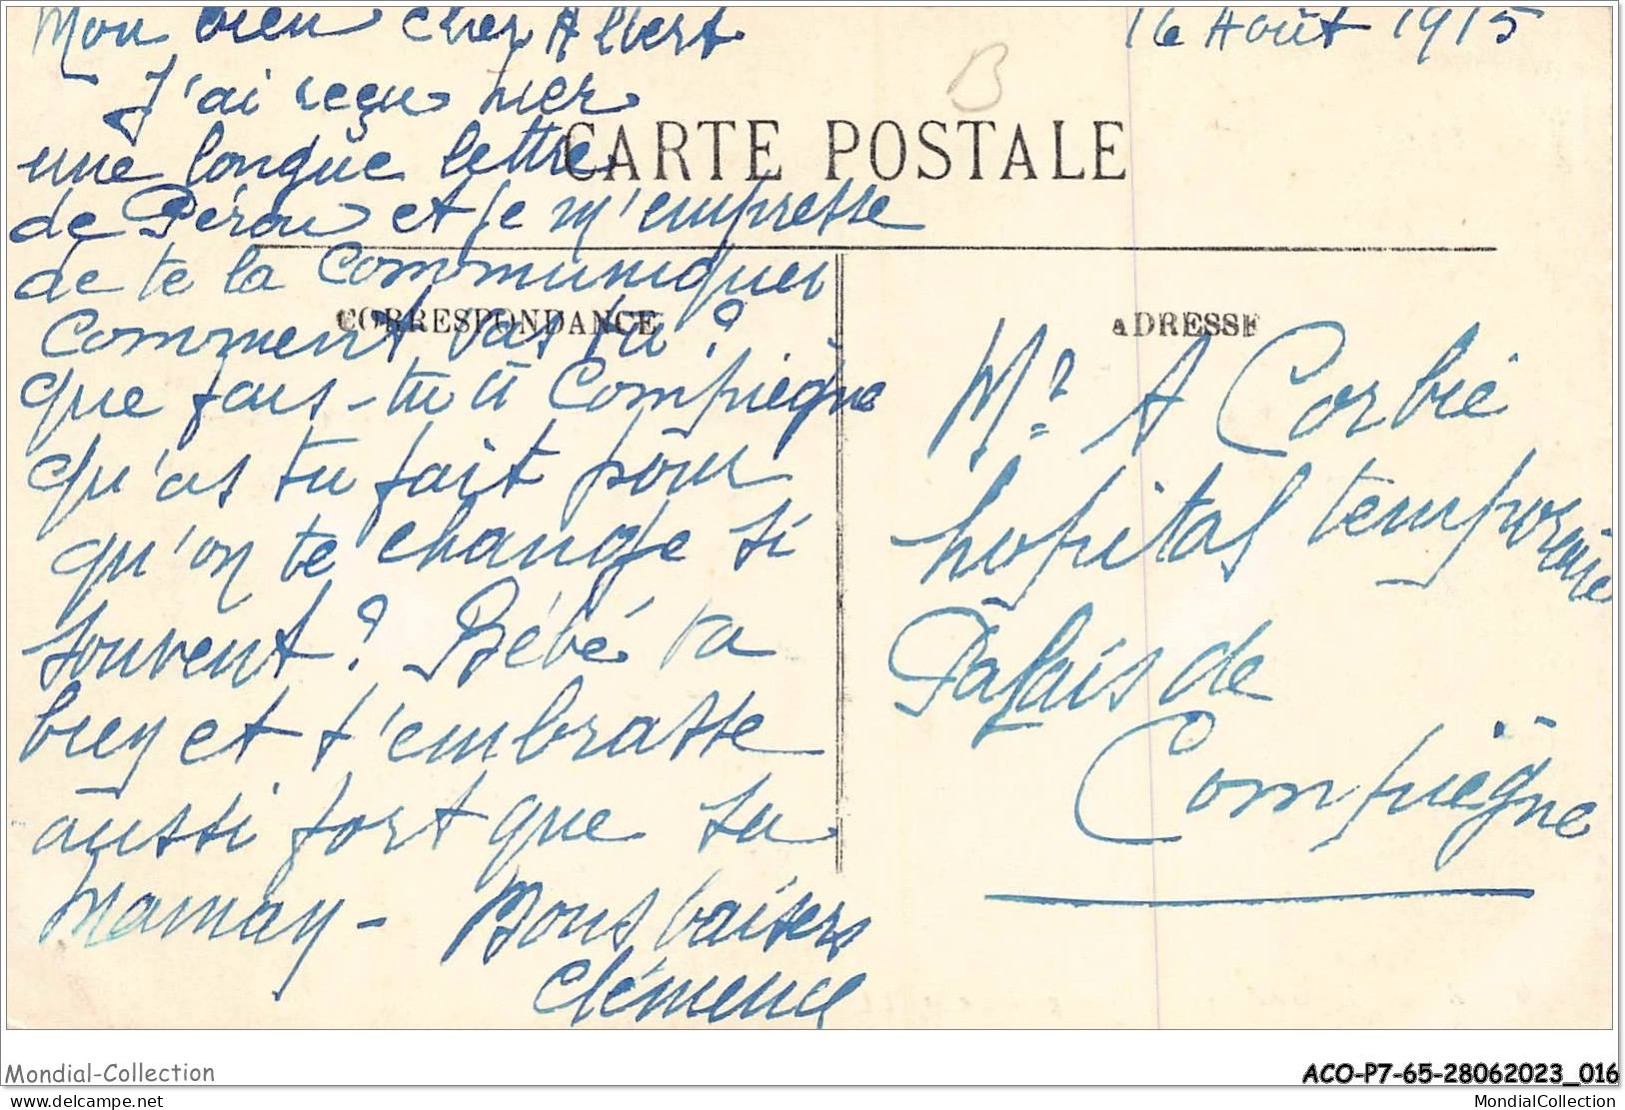 Mon bien cher Albert
16 Août 1915
J'ai reçu hier
une longue lettre
CARTE POSTALE
de Pérou et je m'empresse
de te la communiquer
CORRESPONDANCE
Comment vas tu ?
que fais-tu à Compiègne
qu'as tu fait pour
qu'on te change si
souvent ? Bébé va
bien et t'embrasse
aussi fort que sa
Maman - Bons baisers
Clémence
ADRESSE
Mr A Corbié
hopital temporaire
Palais de
Compiègne
B
Mondial-Collection
ACO-P7-65-28062023_016
www.delcampe.net
MondialCollection